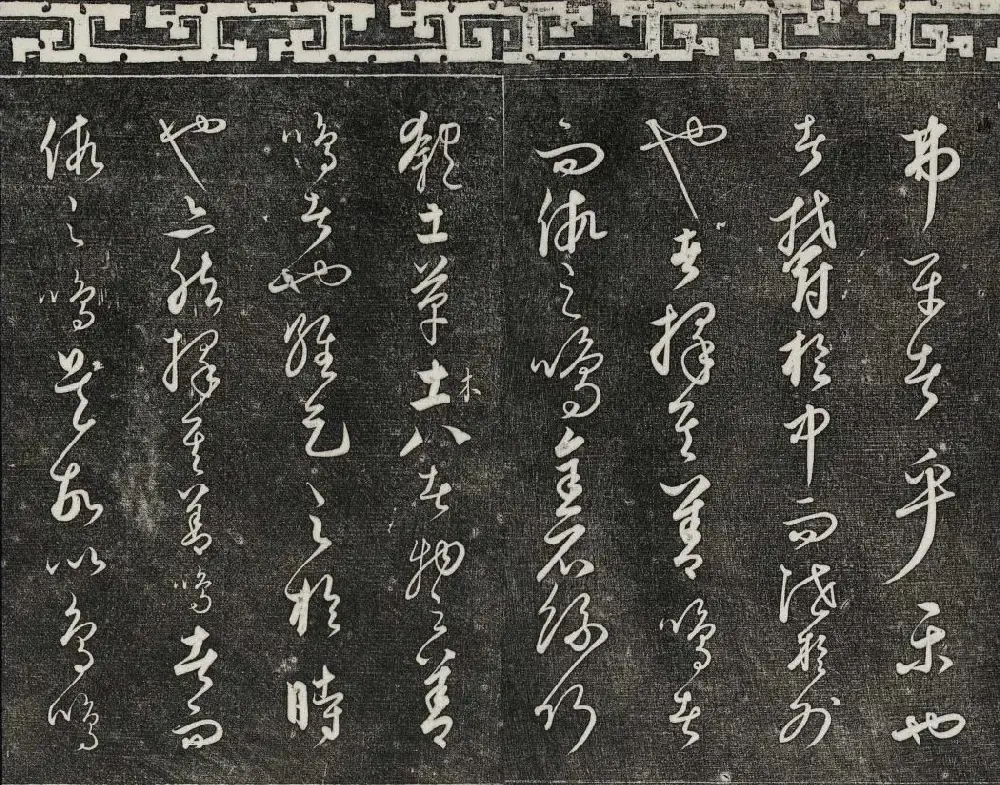 弗平者乎樂也
者鬱於中而泄外
也者擇其善鳴者
而假之鳴金石絲竹
匏土革土八者物之善
木
鳴者也維天之於時
也亦然擇其善鳴者而
假之鳴是故以鳥鳴